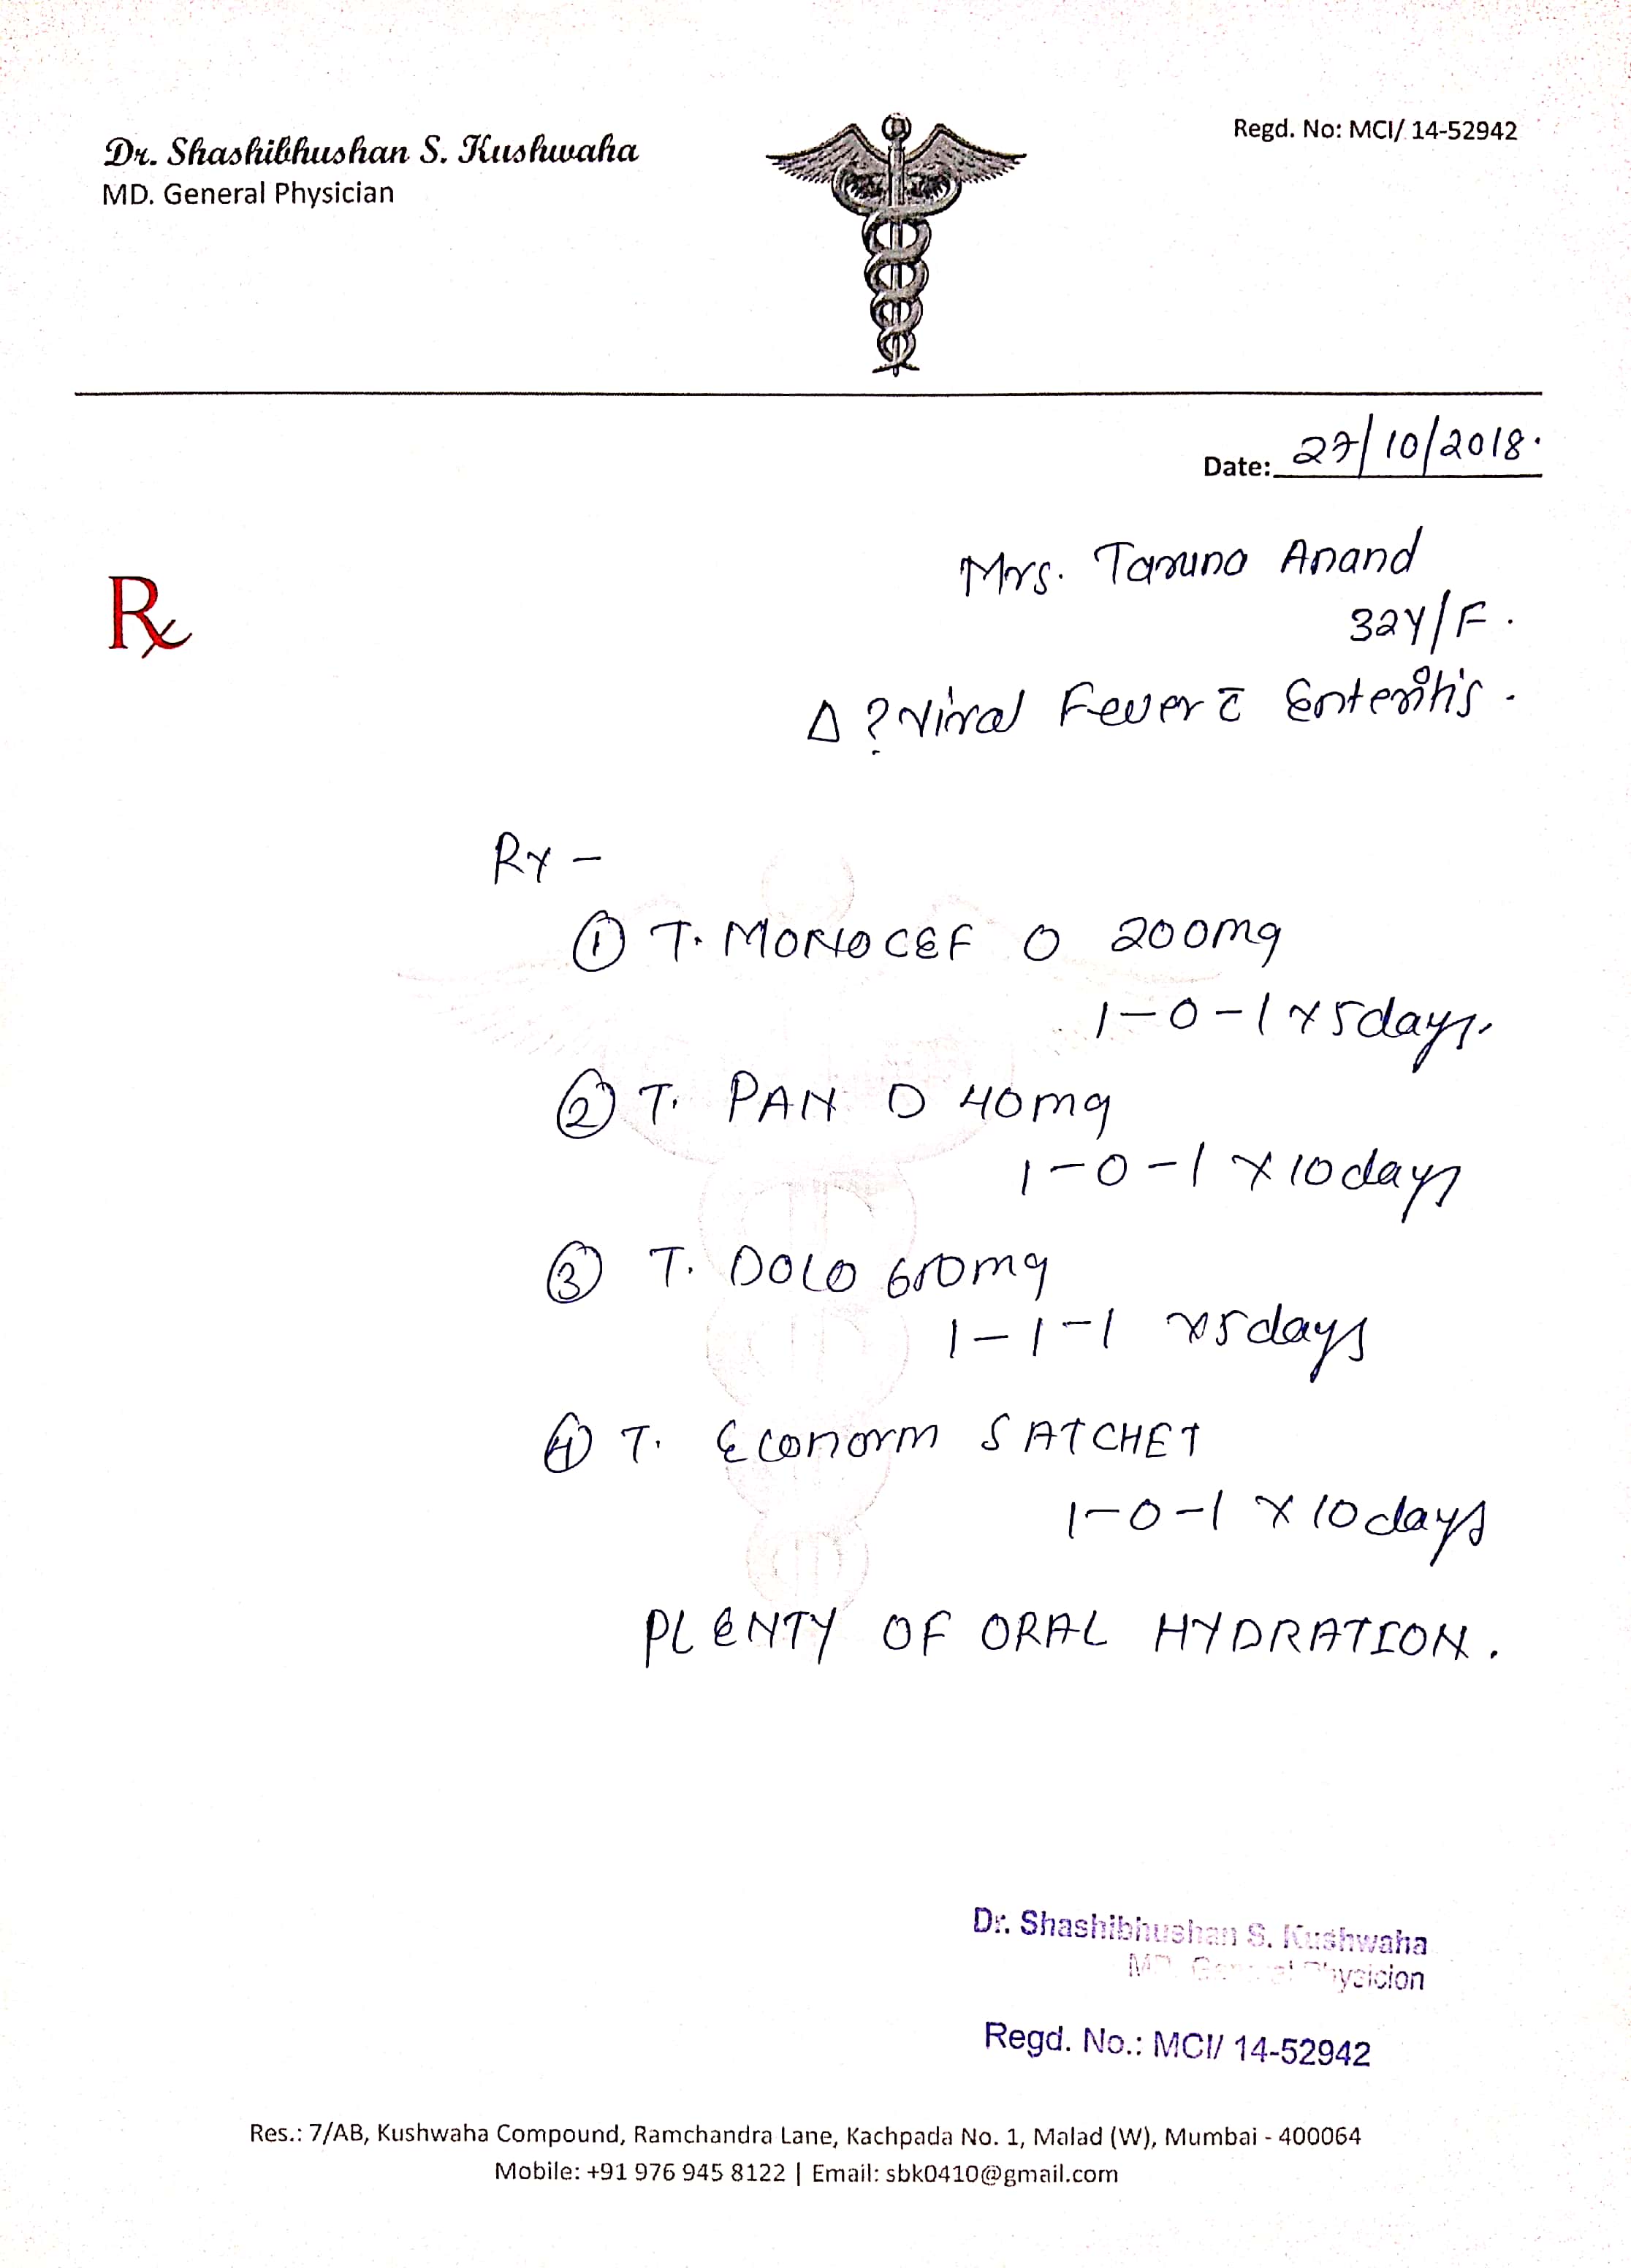 Dr. Shashibhushan S. Kushwaha
MD. General Physician
Regd. No: MCI/ 14-52942
Date: 27/10/2018.
Rx
Mrs. Taruna Anand
32Y/F.
Δ ? Viral Fever c̄ Enteritis.
Rx -
① T. MONOCEF O 200mg
1-0-1 x 5days.
② T. PAN D 40mg
1-0-1 x 10days
③ T. DOLO 650mg
1-1-1 x5days
④ T. Econorm SATCHET
1-0-1 x 10days
PLENTY OF ORAL HYDRATION.
Dr. Shashibhushan S. Kushwaha
MD. General Physicion
Regd. No.: MCI/ 14-52942
Res.: 7/AB, Kushwaha Compound, Ramchandra Lane, Kachpada No. 1, Malad (W), Mumbai - 400064
Mobile: +91 976 945 8122 | Email: sbk0410@gmail.com